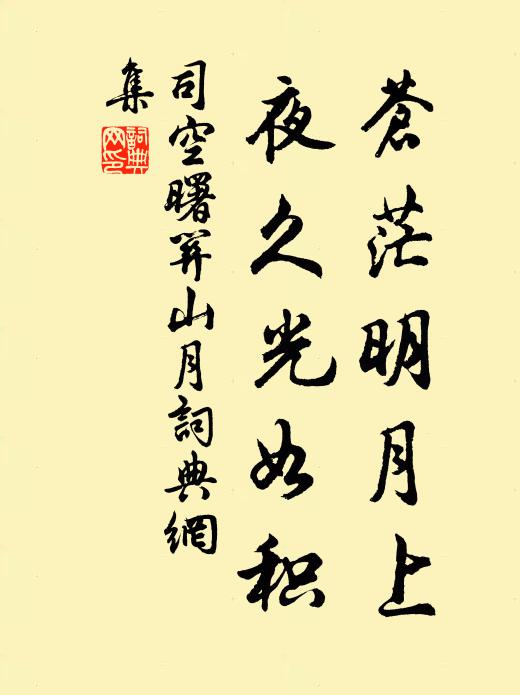 蒼茫明月上
夜久光如积
司空曙關山月詞典網
集
詞典网印